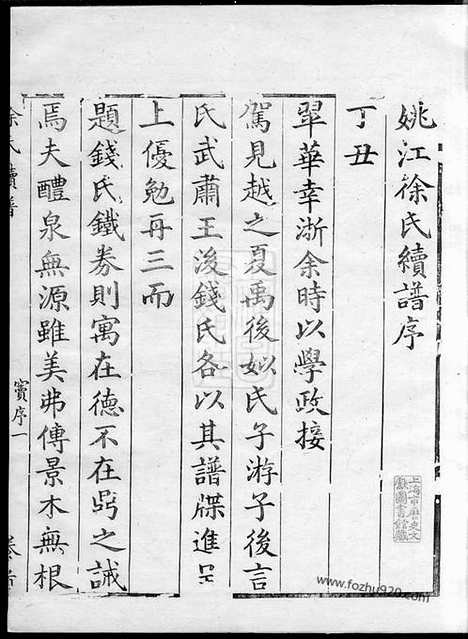 姚江徐氏續譜序
丁丑
翠華幸浙余時以學政接
駕見越之夏禹後姒氏子游子後言
氏武肅王後錢氏各以其譜牒進呈
上優勉再三而
題錢氏鐵券則寓在德不在鼎之誡
焉夫醴泉無源雖美弗傳景木無根
徐氏續譜
竇序一
上海市歷史文
獻圖書館藏
www.fozhu920.com